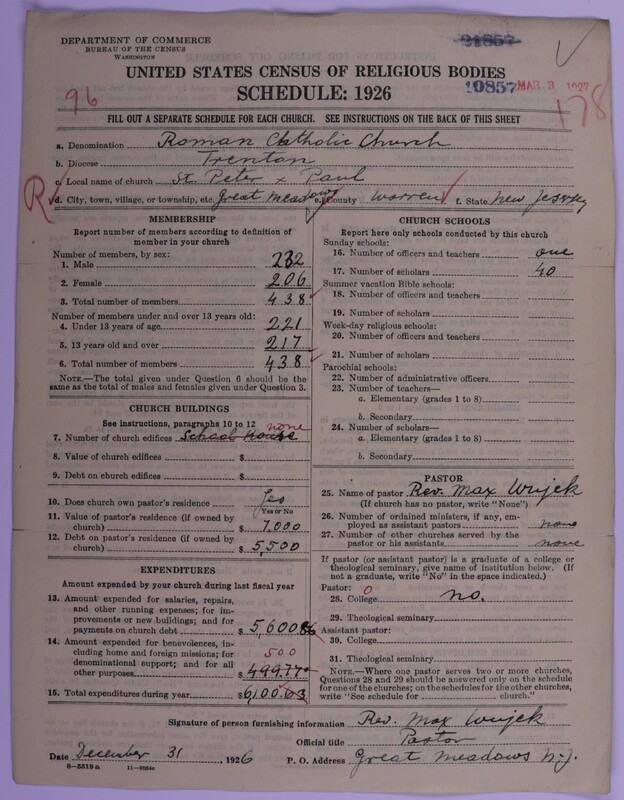 DEPARTMENT OF COMMERCE
BUREAU OF THE CENSUS
WASHINGTON
31857
UNITED STATES CENSUS OF RELIGIOUS BODIES
SCHEDULE: 1926
10857 MAR 3 1927
96
178
FILL OUT A SEPARATE SCHEDULE FOR EACH CHURCH. SEE INSTRUCTIONS ON THE BACK OF THIS SHEET
a. Denomination Roman Catholic Church
b. Diocese Trenton
c. Local name of church St. Peter & Paul
R
d. City, town, village, or township, etc. Great meadows e. County Warren f. State New Jersey
MEMBERSHIP
Report number of members according to definition of
member in your church
Number of members, by sex:
1. Male 232
2. Female 206
3. Total number of members 438
Number of members under and over 13 years old:
4. Under 13 years of age 221
5. 13 years old and over 217
6. Total number of members 438
NOTE.—The total given under Question 6 should be the
same as the total of males and females given under Question 3.
CHURCH BUILDINGS
See instructions, paragraphs 10 to 12
none
7. Number of church edifices School house
8. Value of church edifices $
9. Debt on church edifices $
10. Does church own pastor's residence Yes
Yes or No
11. Value of pastor's residence (if owned by
church) $ 7,000
12. Debt on pastor's residence (if owned by
church) $ 5,500
EXPENDITURES
Amount expended by your church during last fiscal year
13. Amount expended for salaries, repairs,
and other running expenses; for im-
provements or new buildings; and for
payments on church debt $ 5,600.86
14. Amount expended for benevolences, in-
cluding home and foreign missions; for
denominational support; and for all
other purposes $ 499.77
500
15. Total expenditures during year $ 6,100.63
CHURCH SCHOOLS
Report here only schools conducted by this church
Sunday schools:
16. Number of officers and teachers one
17. Number of scholars 40
Summer vacation Bible schools:
18. Number of officers and teachers
19. Number of scholars
Week-day religious schools:
20. Number of officers and teachers
21. Number of scholars
Parochial schools:
22. Number of administrative officers
23. Number of teachers—
a. Elementary (grades 1 to 8)
b. Secondary
24. Number of scholars—
a. Elementary (grades 1 to 8)
b. Secondary
PASTOR
25. Name of pastor Rev. Max Wujek
(If church has no pastor, write "None")
26. Number of ordained ministers, if any, em-
ployed as assistant pastors none
27. Number of other churches served by the
pastor or his assistants none
If pastor (or assistant pastor) is a graduate of a college or
theological seminary, give name of institution below. (If
not a graduate, write "No" in the space indicated.)
Pastor: 0
28. College no.
29. Theological seminary
Assistant pastor:
30. College
31. Theological seminary
NOTE.—Where one pastor serves two or more churches,
Questions 28 and 29 should be answered only on the schedule
for one of the churches; on the schedules for the other churches,
write "See schedule for church."
Signature of person furnishing information Rev. Max Wujek
Official title Pastor
Date December 31 1926 P. O. Address Great Meadows N.J.